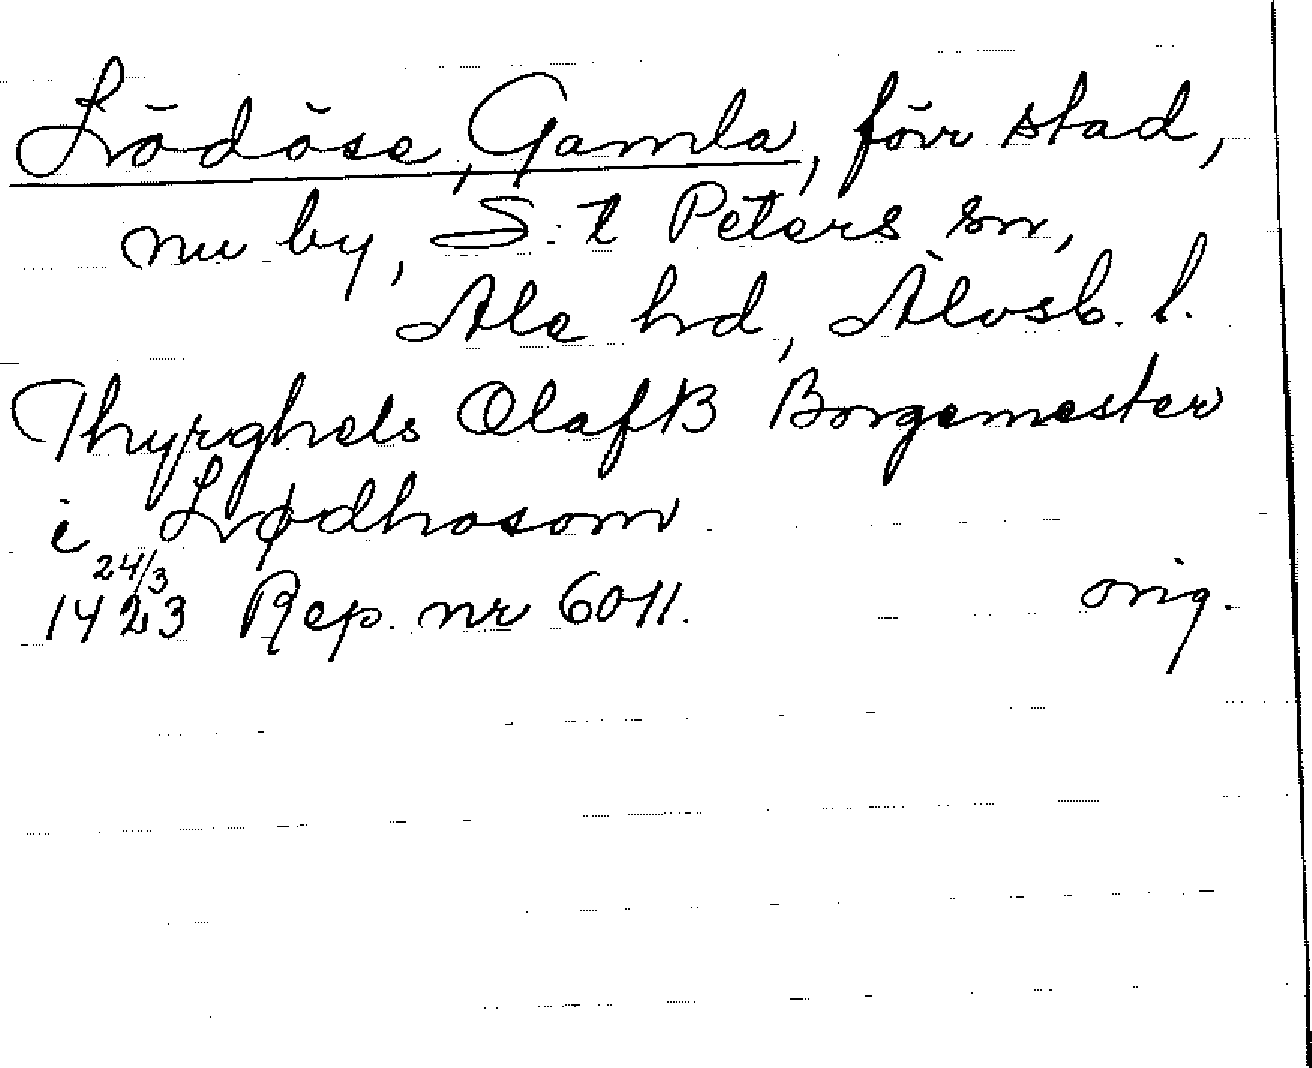 Lödöse, Gamla, förr stad,
nu by, S:t Peters sn,
Ale hd, Älvsb. l.
Thyrghels Olafß Borgemester
i Lødhosom
24/3
1423 Rep. nr 6011. orig.